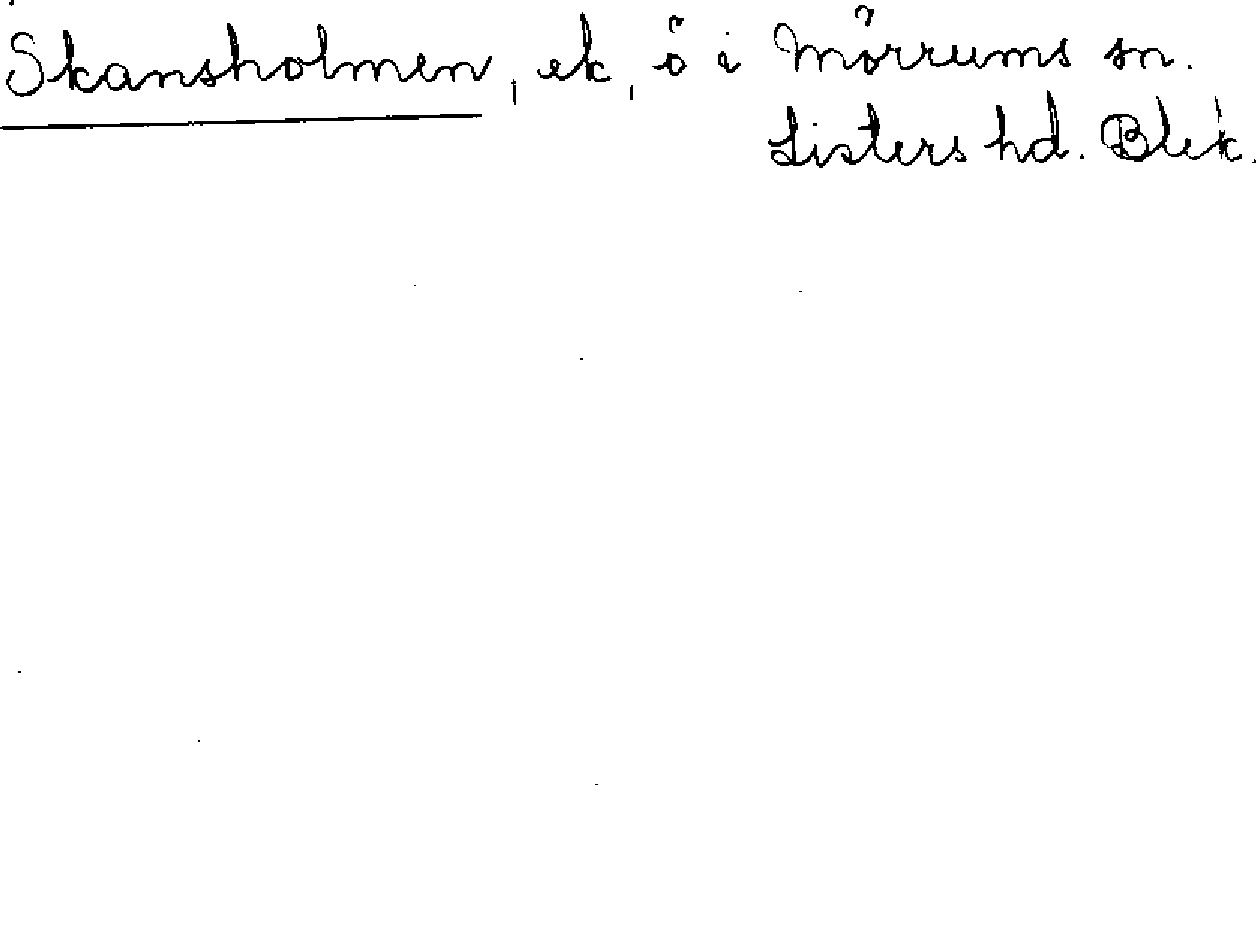 Skansholmen, ek, ö i Mörrums sn.
Listers hd. Blek.